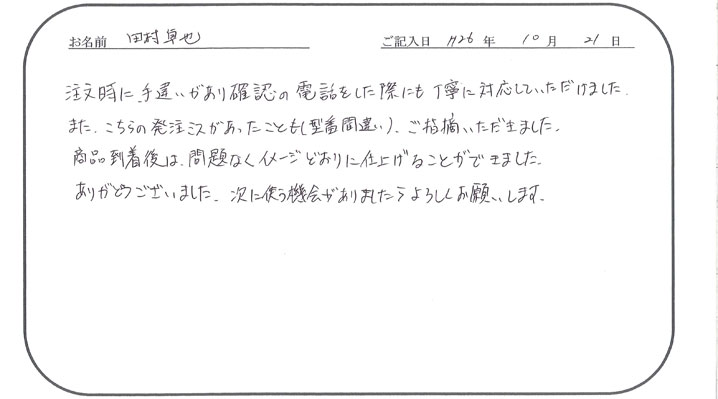 お名前 田村卓也 ご記入日 H26 年 10 月 21 日
注文時に手違いがあり確認の電話をした際にも丁寧に対応していただけました.
また、こちらの発注ミスがあったことも(型番間違い)、ご指摘いただきました。
商品到着後は、問題なくイメージどおりに仕上げることができました。
ありがとうございました。次に使う機会がありましたらよろしくお願いします。